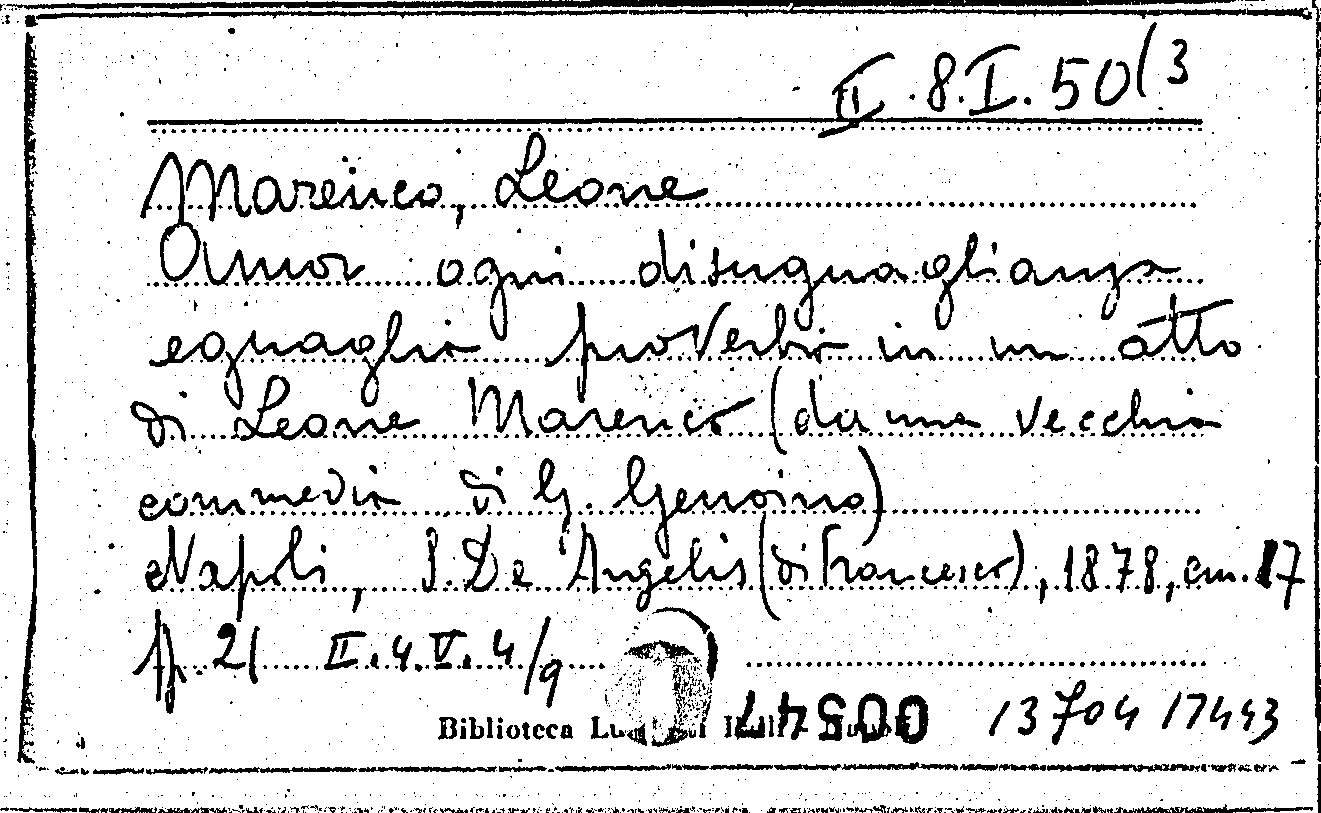 II.8.I.50(3
Marenco, Leone
Amor ogni disuguaglianza
eguaglia proverbio in un atto
di Leone Marenco (da una vecchia
commedia di G. Genoino)
Napoli, S. De Angelis (di Francesco), 1878, cm. 17
pp. 21 II.4.V.4/9
Biblioteca 13704 17443